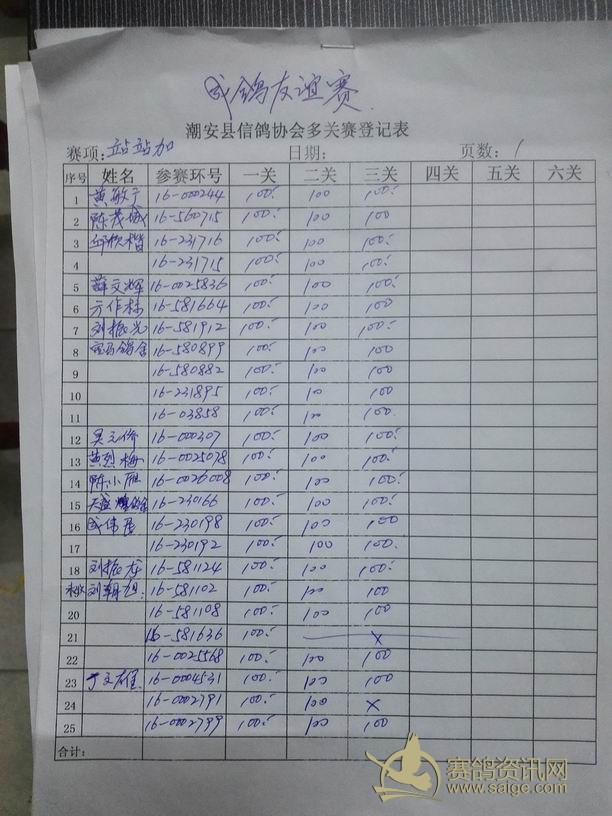 鸽友谊赛
潮安县信鸽协会多关赛登记表
赛项: 站站加 日期: 页数: 1
序号 姓名 参赛环号 一关 二关 三关 四关 五关 六关
1 黄敏 16-000244 100 100 100
2 陈茂 16-560715 100 100 100
3 16-231716 100 100 100
4 16-231715 100 100 100
5 薛文辉 16-0025836 100 100 100
6 方作 16-581664 100 100 100
7 刘振光 16-581912 100 100 100
8 16-580899 100 100 100
9 16-580882 100 100 100
10 16-231895 100 100 100
11 16-03858 100 100 100
12 吴 16-000307 100 100 100
13 黄烈梅 16-0025078 100 100 100
14 陈小雁 16-0026008 100 100 100
15 16-230166 100 100 100
16 16-230198 100 100 100
17 16-230192 100 100 100
18 刘振龙 16-581124 100 100 100
刘朝旭 16-581102 100 100 100
20 16-581108 100 100 100
21 16-581636 100 — ×
22 16-0025568 100 100 100
23 文雄 16-0004531 100 100 100
24 16-0002791 100 100 ×
25 16-0002799 100 100 100
合计:
赛鸽资讯网
www.saige.com